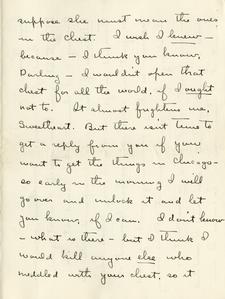 suppose she must mean the ones
in the chest. I wish I knew –
because – I think you know,
Darling – I wouldn't open that
chest for all the world, if I ought
not to. It almost frightens me,
Sweetheart. But there isn't time to
get a reply from you if you
want to get the things in Chicago –
so early in the morning I will
go over and unlock it and let
you know, if I can. I don't know
– what is there – but I think I
would kill anyone else who
meddled with your chest, so it